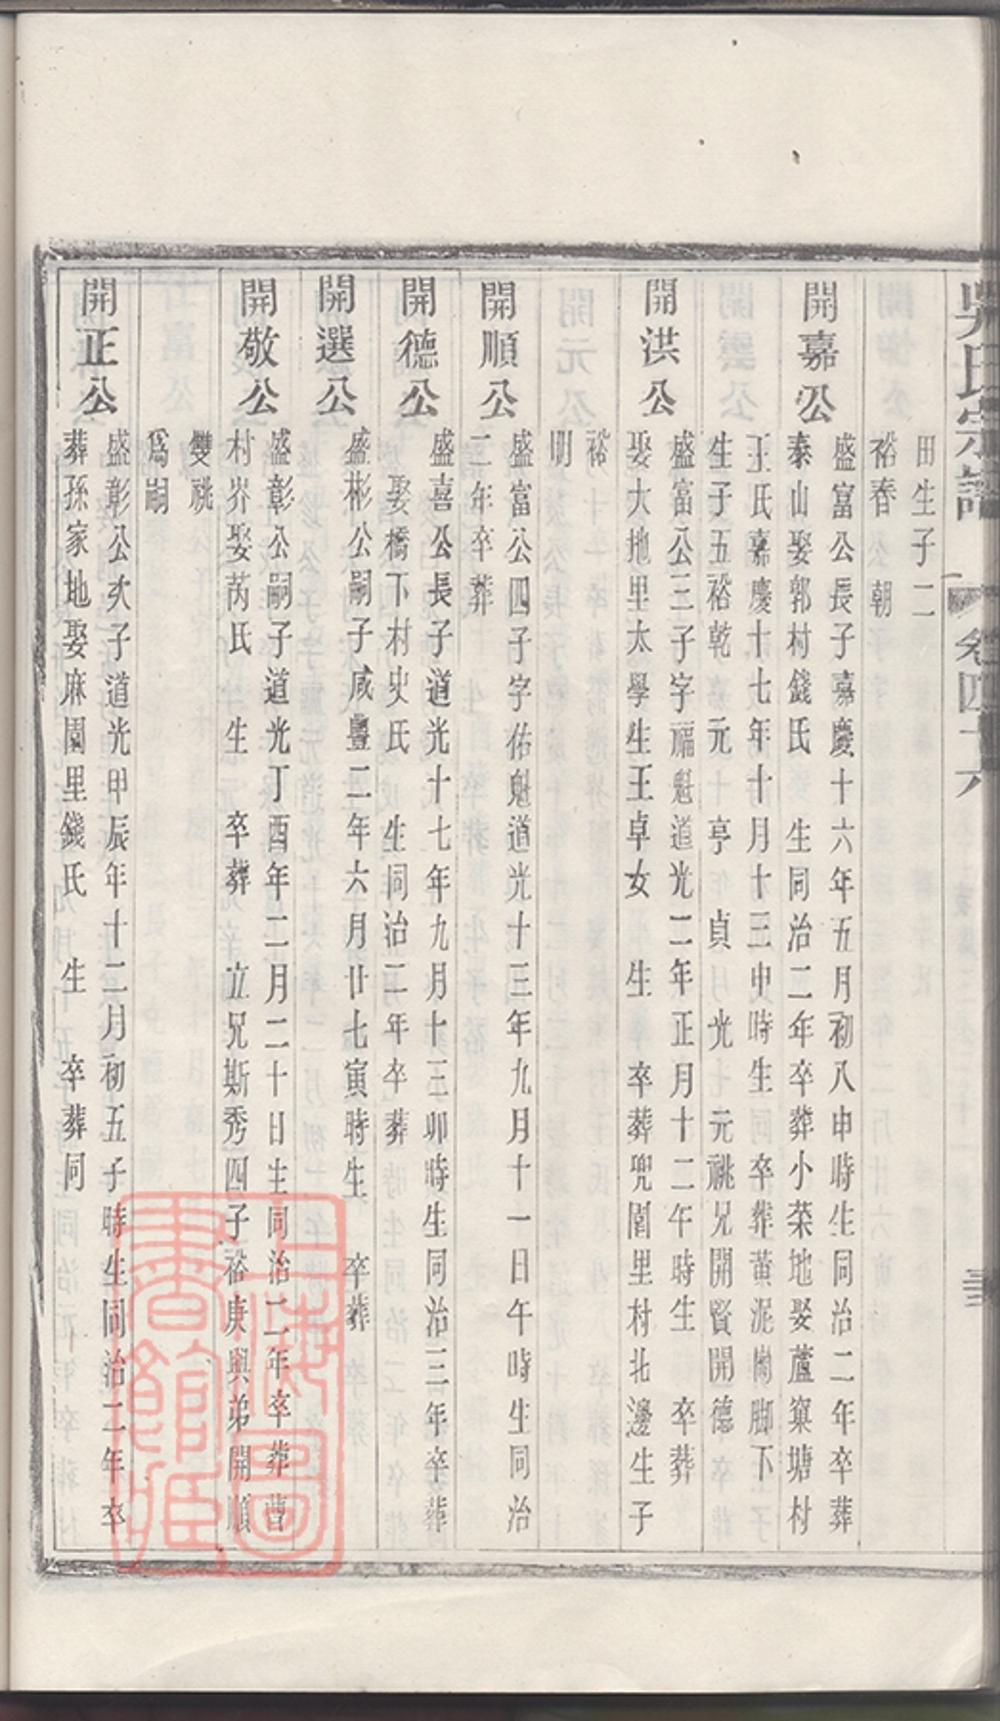 吳氏宗譜 卷四十六
田生子二
裕春 朝
開嘉公
盛富公長子嘉慶十六年五月初八申時生同治二年卒葬
泰山娶郭村錢氏 生同治二年卒葬小菜地娶蘆窠塘村
王氏嘉慶十七年十月十三申時生 卒葬黃泥崗脚下
生子五裕乾 元 亨 貞 光 元祧兄開賢開德
開洪公
盛富公三子字福魁道光二年正月十二午時生 卒葬
娶大地里太學生王卓女 生 卒葬兜圍里村北邊生子
裕
明
開順公
盛富公四子字佑魁道光十三年九月十一日午時生同治
二年卒葬
開德公
盛喜公長子道光十七年九月十三卯時生同治三年卒葬
娶橋下村史氏 生同治二年卒葬
開選公
盛彬公嗣子咸豐二年六月廿七寅時生 卒葬
開敬公
盛彰公嗣子道光丁酉年二月二十日生同治二年卒葬曹
村岕娶芮氏 生 卒葬 立兄斯秀四子裕庚與弟開順
雙祧
爲嗣
開正公
盛彰公次子道光甲辰年十二月初五子時生同治二年卒
葬孫家地娶麻園里錢氏 生 卒葬同
上海圖書館藏